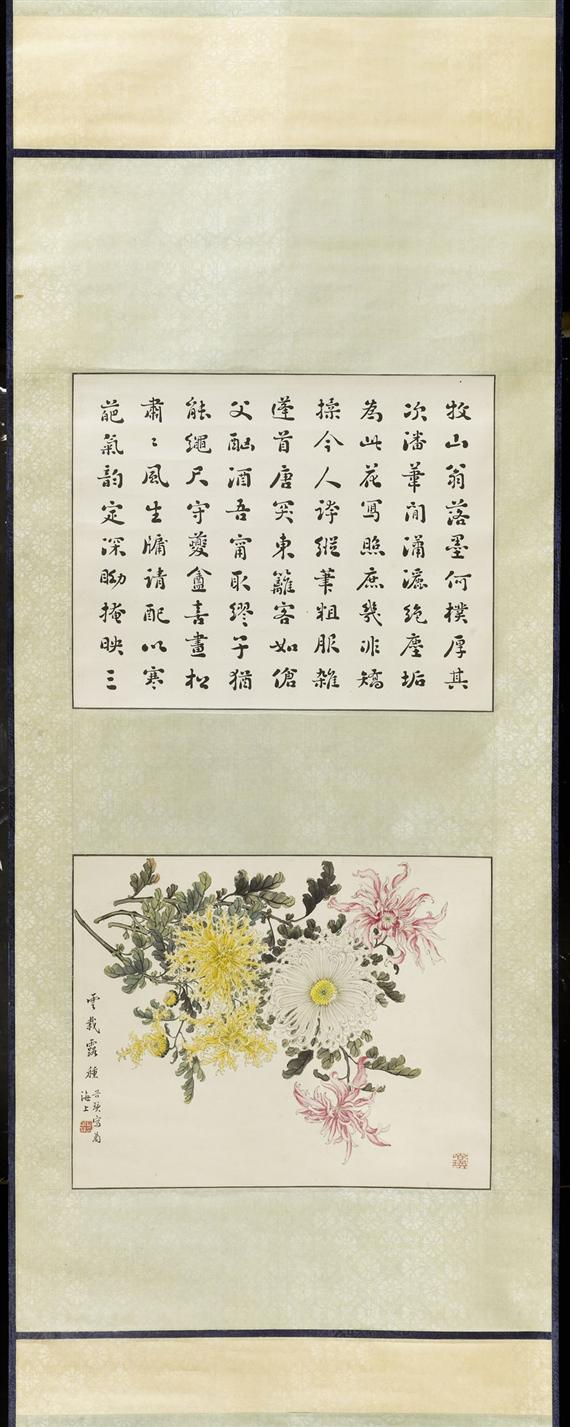 牧山翁落墨何樸厚其
次潘筆閒瀟灑絕塵垢
為此花寫照庶幾非矯
揉今人誇縱筆粗服雜
蓬首唐突東籬客如傖
父酗酒吾甯取繆子猶
能繩尺守夔盦喜畫松
肅〻風生牖請配以寒
葩氣韵定深黝掩映三
雲栽露種
寫菊
海上